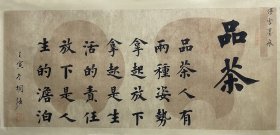 品茶
品茶人有
兩種姿勢
拿起放下
拿起是生
活的責任
放下是人
生的澹泊